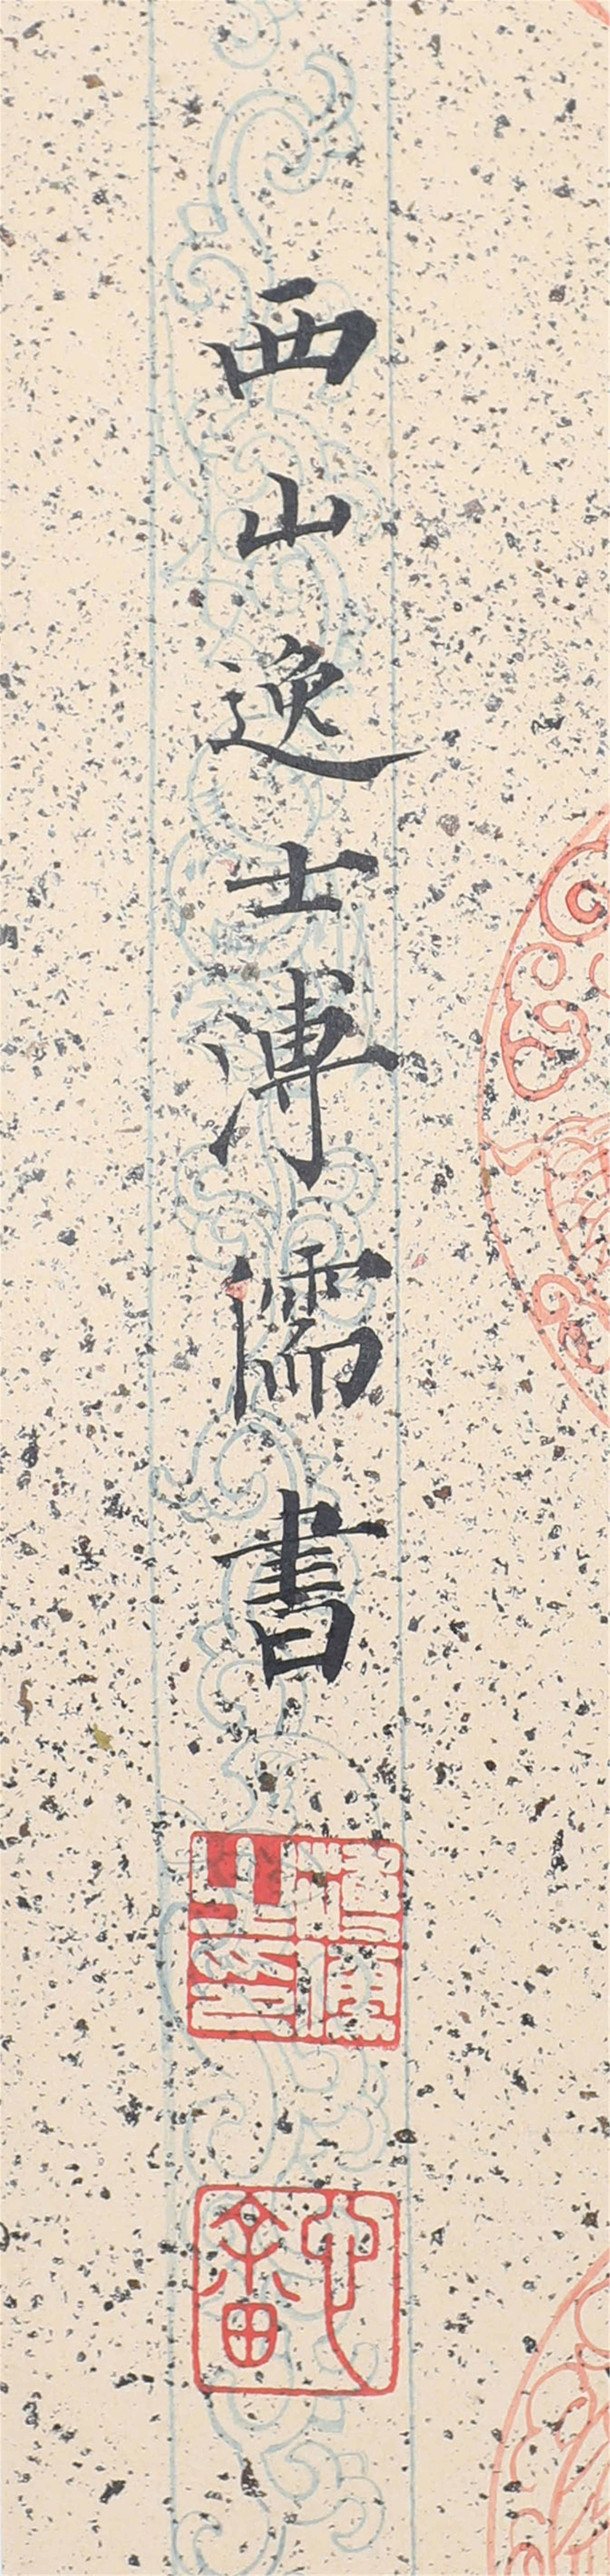 西山逸士溥儒書